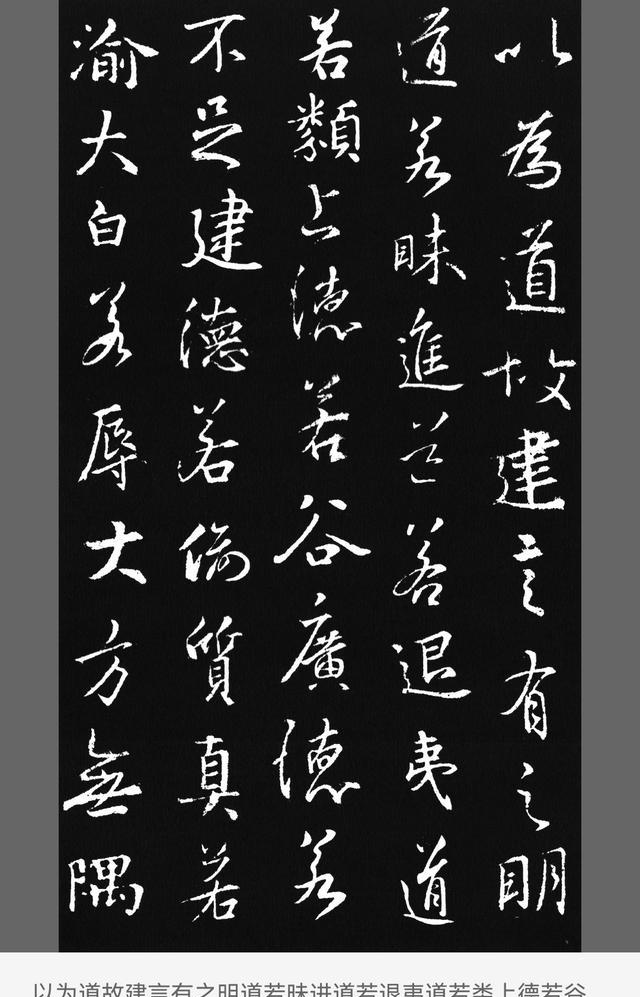 以為道故建言有之明
道若昧進道若退夷道
若纇上德若谷廣德若
不足建德若偷質真若
渝大白若辱大方無隅
以为道故建言有之明道若昧进道若退夷道若类上德若谷